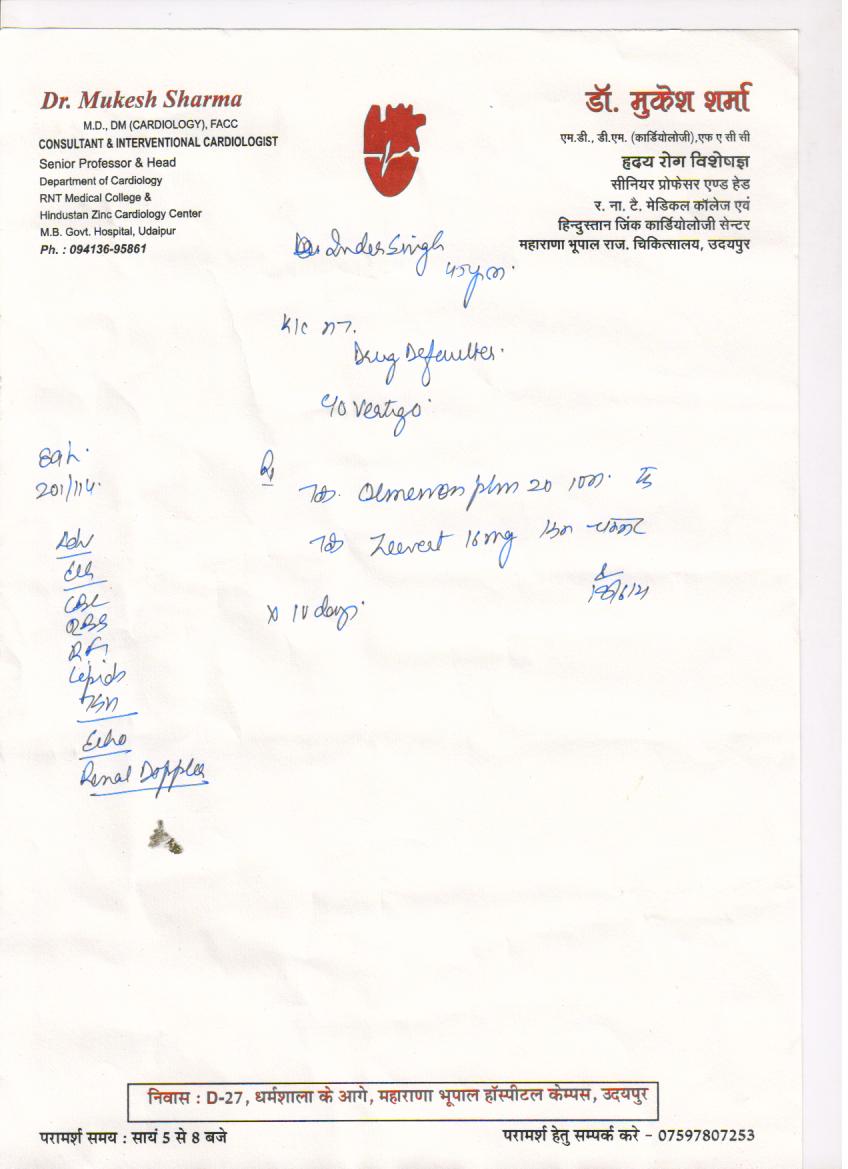 Dr. Mukesh Sharma
M.D., DM (CARDIOLOGY), FACC
CONSULTANT & INTERVENTIONAL CARDIOLOGIST
Senior Professor & Head
Department of Cardiology
RNT Medical College &
Hindustan Zinc Cardiology Center
M.B. Govt. Hospital, Udaipur
Ph. : 094136-95861
डॉ. मुकेश शर्मा
एम.डी., डी.एम. (कार्डियोलोजी),एफ ए सी सी
हृदय रोग विशेषज्ञ
सीनियर प्रोफेसर एण्ड हेड
र. ना. टै. मेडिकल कॉलेज एवं
हिन्दुस्तान जिंक कार्डियोलोजी सेन्टर
महाराणा भूपाल राज. चिकित्सालय, उदयपुर
Inder Singh
K/c
Drug Defaulter.
C/o Vertigo.
201/114.
Adv
CBC
RBS
RFT
Lipids
Echo
Renal Doppler
Rx
20
16mg
x 10 days.
निवास : D-27, धर्मशाला के आगे, महाराणा भूपाल हॉस्पीटल केम्पस, उदयपुर
परामर्श समय : सायं 5 से 8 बजे
परामर्श हेतु सम्पर्क करे - 07597807253